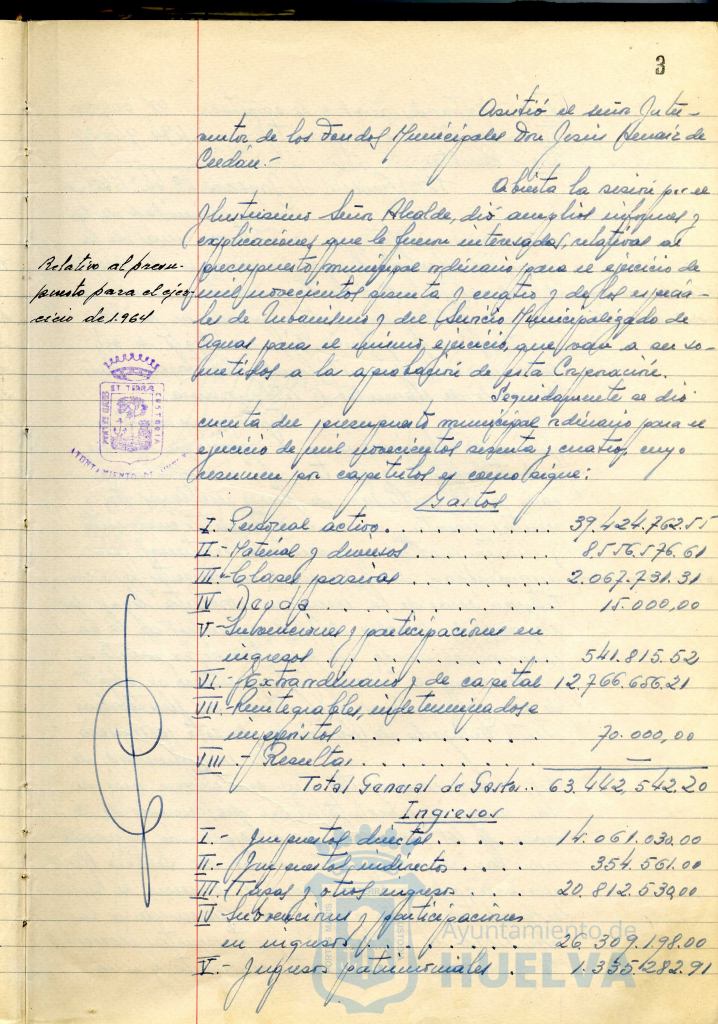 3
Asistió el señor Inter-
ventor de los Fondos Municipales Don Jesús de
Cerdán.-
Abierta la sesión por el
Ilustrísimo Señor Alcalde, dió amplios informes y
explicaciones que le fueron interesadas, relativas al
presupuesto municipal ordinario para el ejercicio de
mil novecientos sesenta y cuatro y de los especia-
les de Urbanismo y del Servicio Municipalizado de
Aguas para el mismo ejercicio, que van a ser so-
metidos a la aprobación de esta Corporación.
Relativo al presu-
puesto para el ejer-
cicio de 1.964
Seguidamente se dió
cuenta del presupuesto municipal ordinario para el
ejercicio de mil novecientos sesenta y cuatro, cuyo
resumen por capítulos es como sigue:
ET TERRAE
CUSTODIA
AYUNTAMIENTO DE
Gastos
I. Personal activo. . . . . . . . . . 39.424.762.55
II.- Material y diversos . . . . . . . 8.556.576.61
III.- Clases pasivas . . . . . . . . . 2.067.731.31
IV Deuda . . . . . . . . . . . . 15.000,00
V.- Subvenciones y participaciones en
ingresos . . . . . . . . . . 541.815.52
VI.- Extraordinario y de capital 12.766.656.21
VII.- Reintegrables, indeterminados e
imprevistos . . . . . . . . . . 70.000,00
VIII.- Resultas . . . . . . . . . —
Total General de Gastos.. 63.442,542.20
Ingresos
I.- Impuestos directos . . . . . 14.061.030.00
II.- Impuestos indirectos . . . . 354.561.00
III Tasas y otros ingresos . . . . 20.812.530,00
IV Subvenciones y participaciones
en ingresos . . . . . . . . . . 26.309.198.00
V.- Ingresos patrimoniales . . . 1.335.282.91
Ayuntamiento de
HUELVA